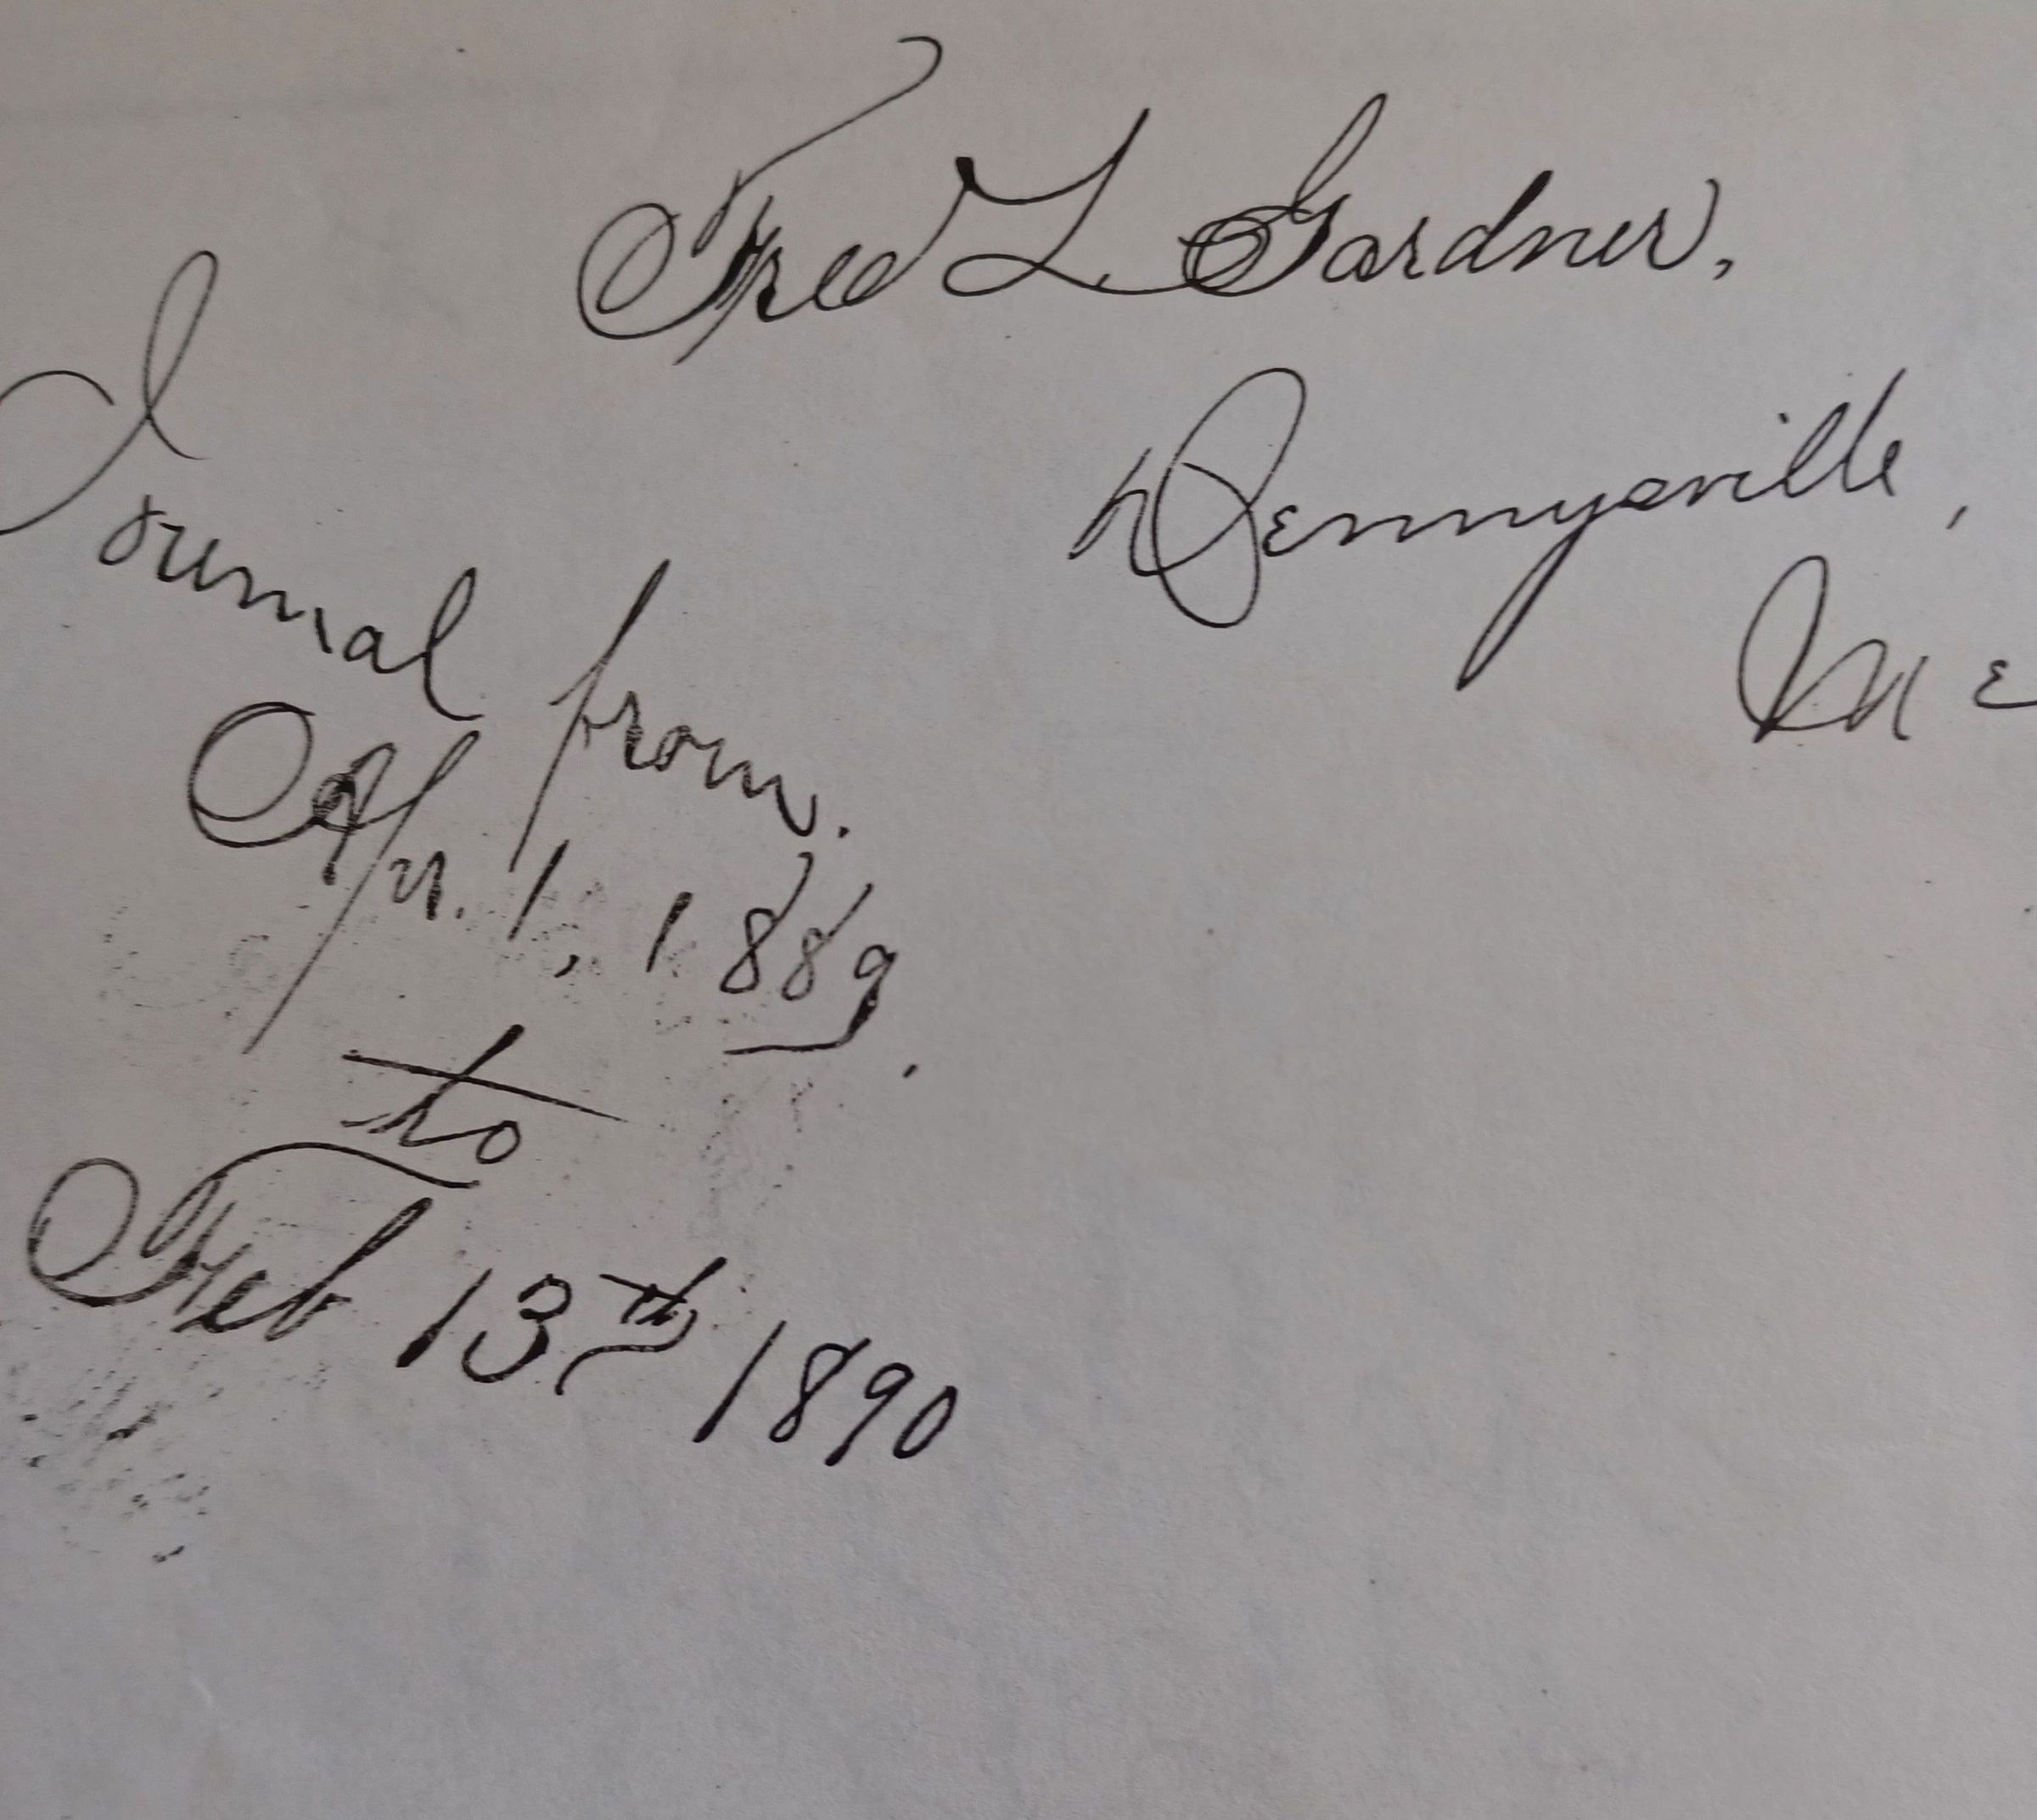 Fred L Gardner,
Dennysville,
Me
Journal from.
Apr. 1, 1889.
to
Feb 13th 1890